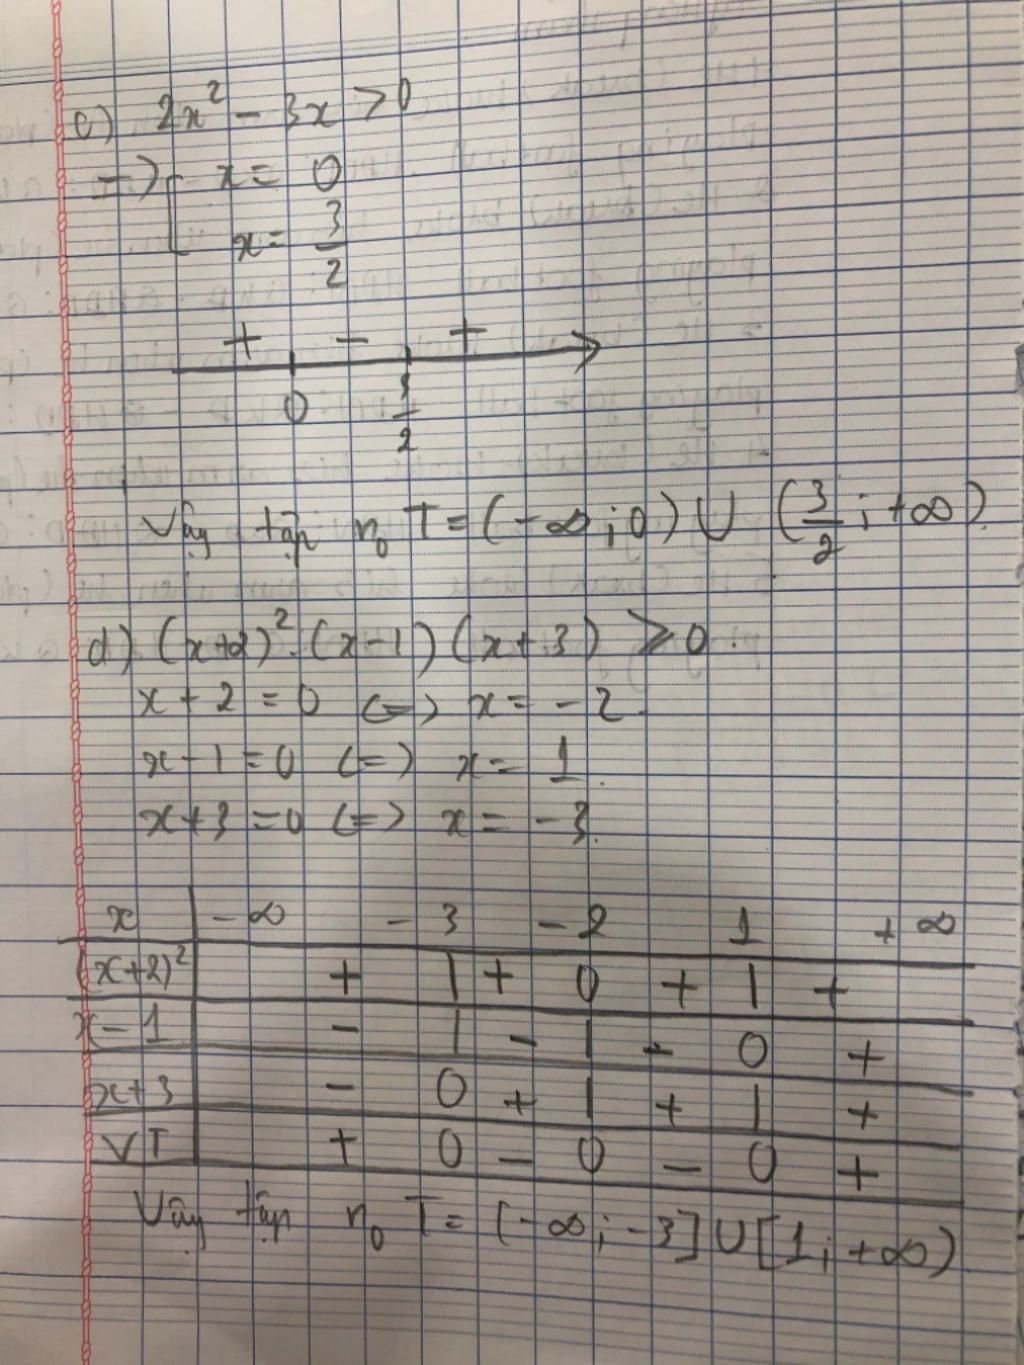 c) 2x² - 3x > 0
=> [ x = 0
x = 3/2
+ - +
0 3/2
Vậy tập n₀ T = (-∞; 0) ∪ (3/2; +∞)
d) (x+2)².(x-1)(x+3) ≥ 0.
x + 2 = 0 <=> x = -2
x - 1 = 0 <=> x = 1.
x + 3 = 0 <=> x = -3.
x -∞ -3 -2 1 +∞
(x+2)² + | + 0 + | +
x - 1 - | - | - 0 +
x+3 - 0 + | + | +
VT + 0 - 0 - 0 +
Vậy tập n₀ T = (-∞; -3] ∪ [1; +∞)